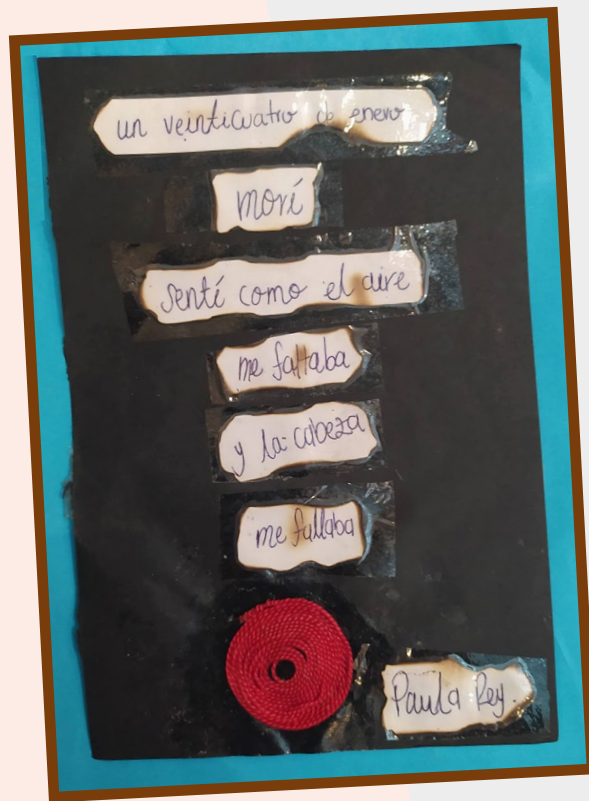 un veinticuatro de enero
morí
sentí como el aire
me faltaba
y la cabeza
me fallaba
Paula Rey.